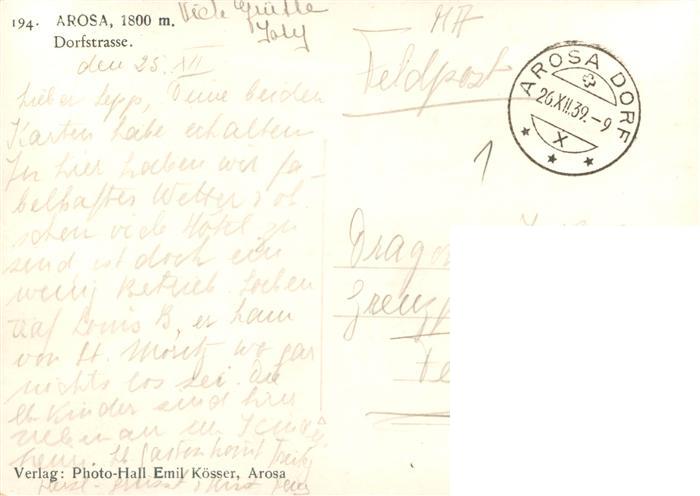 194. AROSA, 1800 m.
Dorfstrasse.
Viele Grüsse
den 25. XII
Lieber Sepp, Deine beiden
Karten habe erhalten
hier haben wir fa-
belhaftes Wetter & ob-
schon viele Hotel zu
sind ist doch ein
wenig Betrieb. Soeben
traf Louis B, er kam
von St. Moritz wo gar
nichts los sei. Die
Kinder sind hier
nebenan im Kinder
heim.
Verlag: Photo-Hall Emil Kösser, Arosa
Feldpost
AROSA DORF
26.XII.39.-9
X
1
Dragon
Grenz
Fe